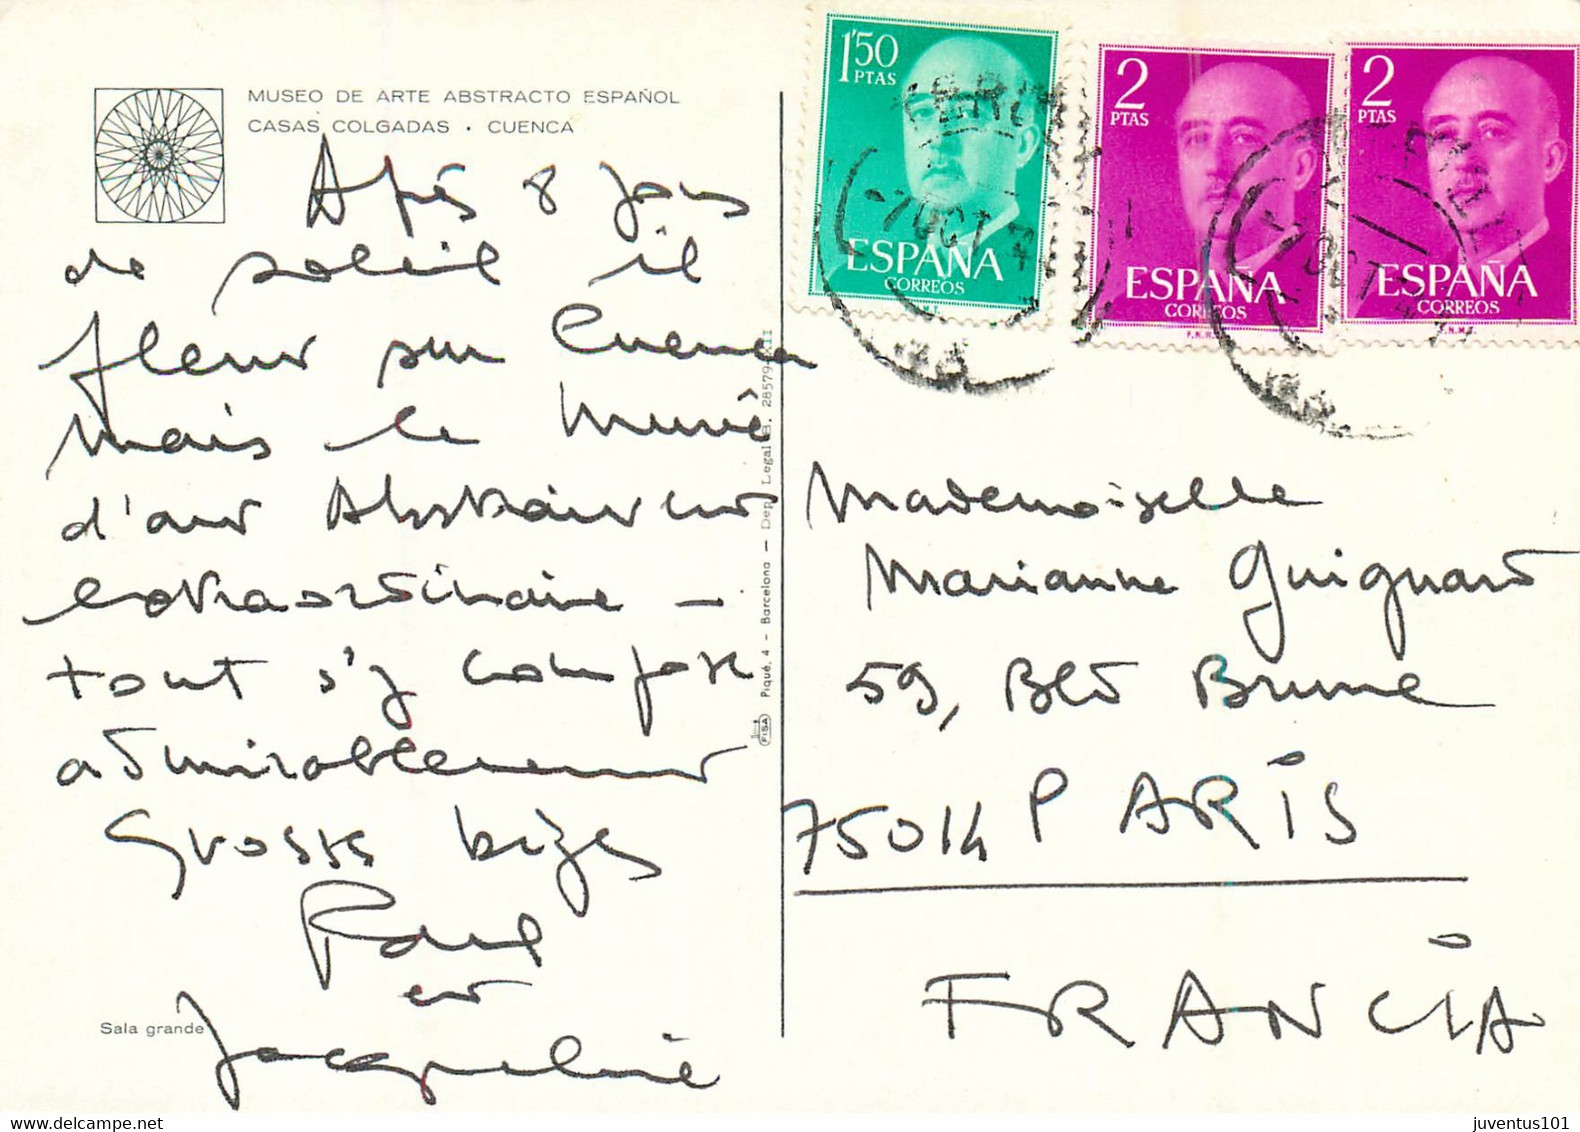 MUSEO DE ARTE ABSTRACTO ESPAÑOL
CASAS COLGADAS · CUENCA
Après 8 jours
de soleil il
pleut sur Cuenca
mais le Musée
d'art Abstrait est
extraordinaire –
tout s'y compose
admirablement
Grosses bizes
Paul
et
Jacqueline
Sala grande
FISA
Piqué, 4 - Barcelona — Dep. Legal B. 28579
1'50
PTAS
ESPAÑA
CORREOS
2
PTAS
ESPAÑA
CORREOS
F.N.M.T.
2
PTAS
ESPAÑA
CORREOS
F.N.M.T.
-7 OCT 7
Mademoiselle
Marianne Guignard
59, Bld Brune
75014 PARIS
FRANCIA
juventus101